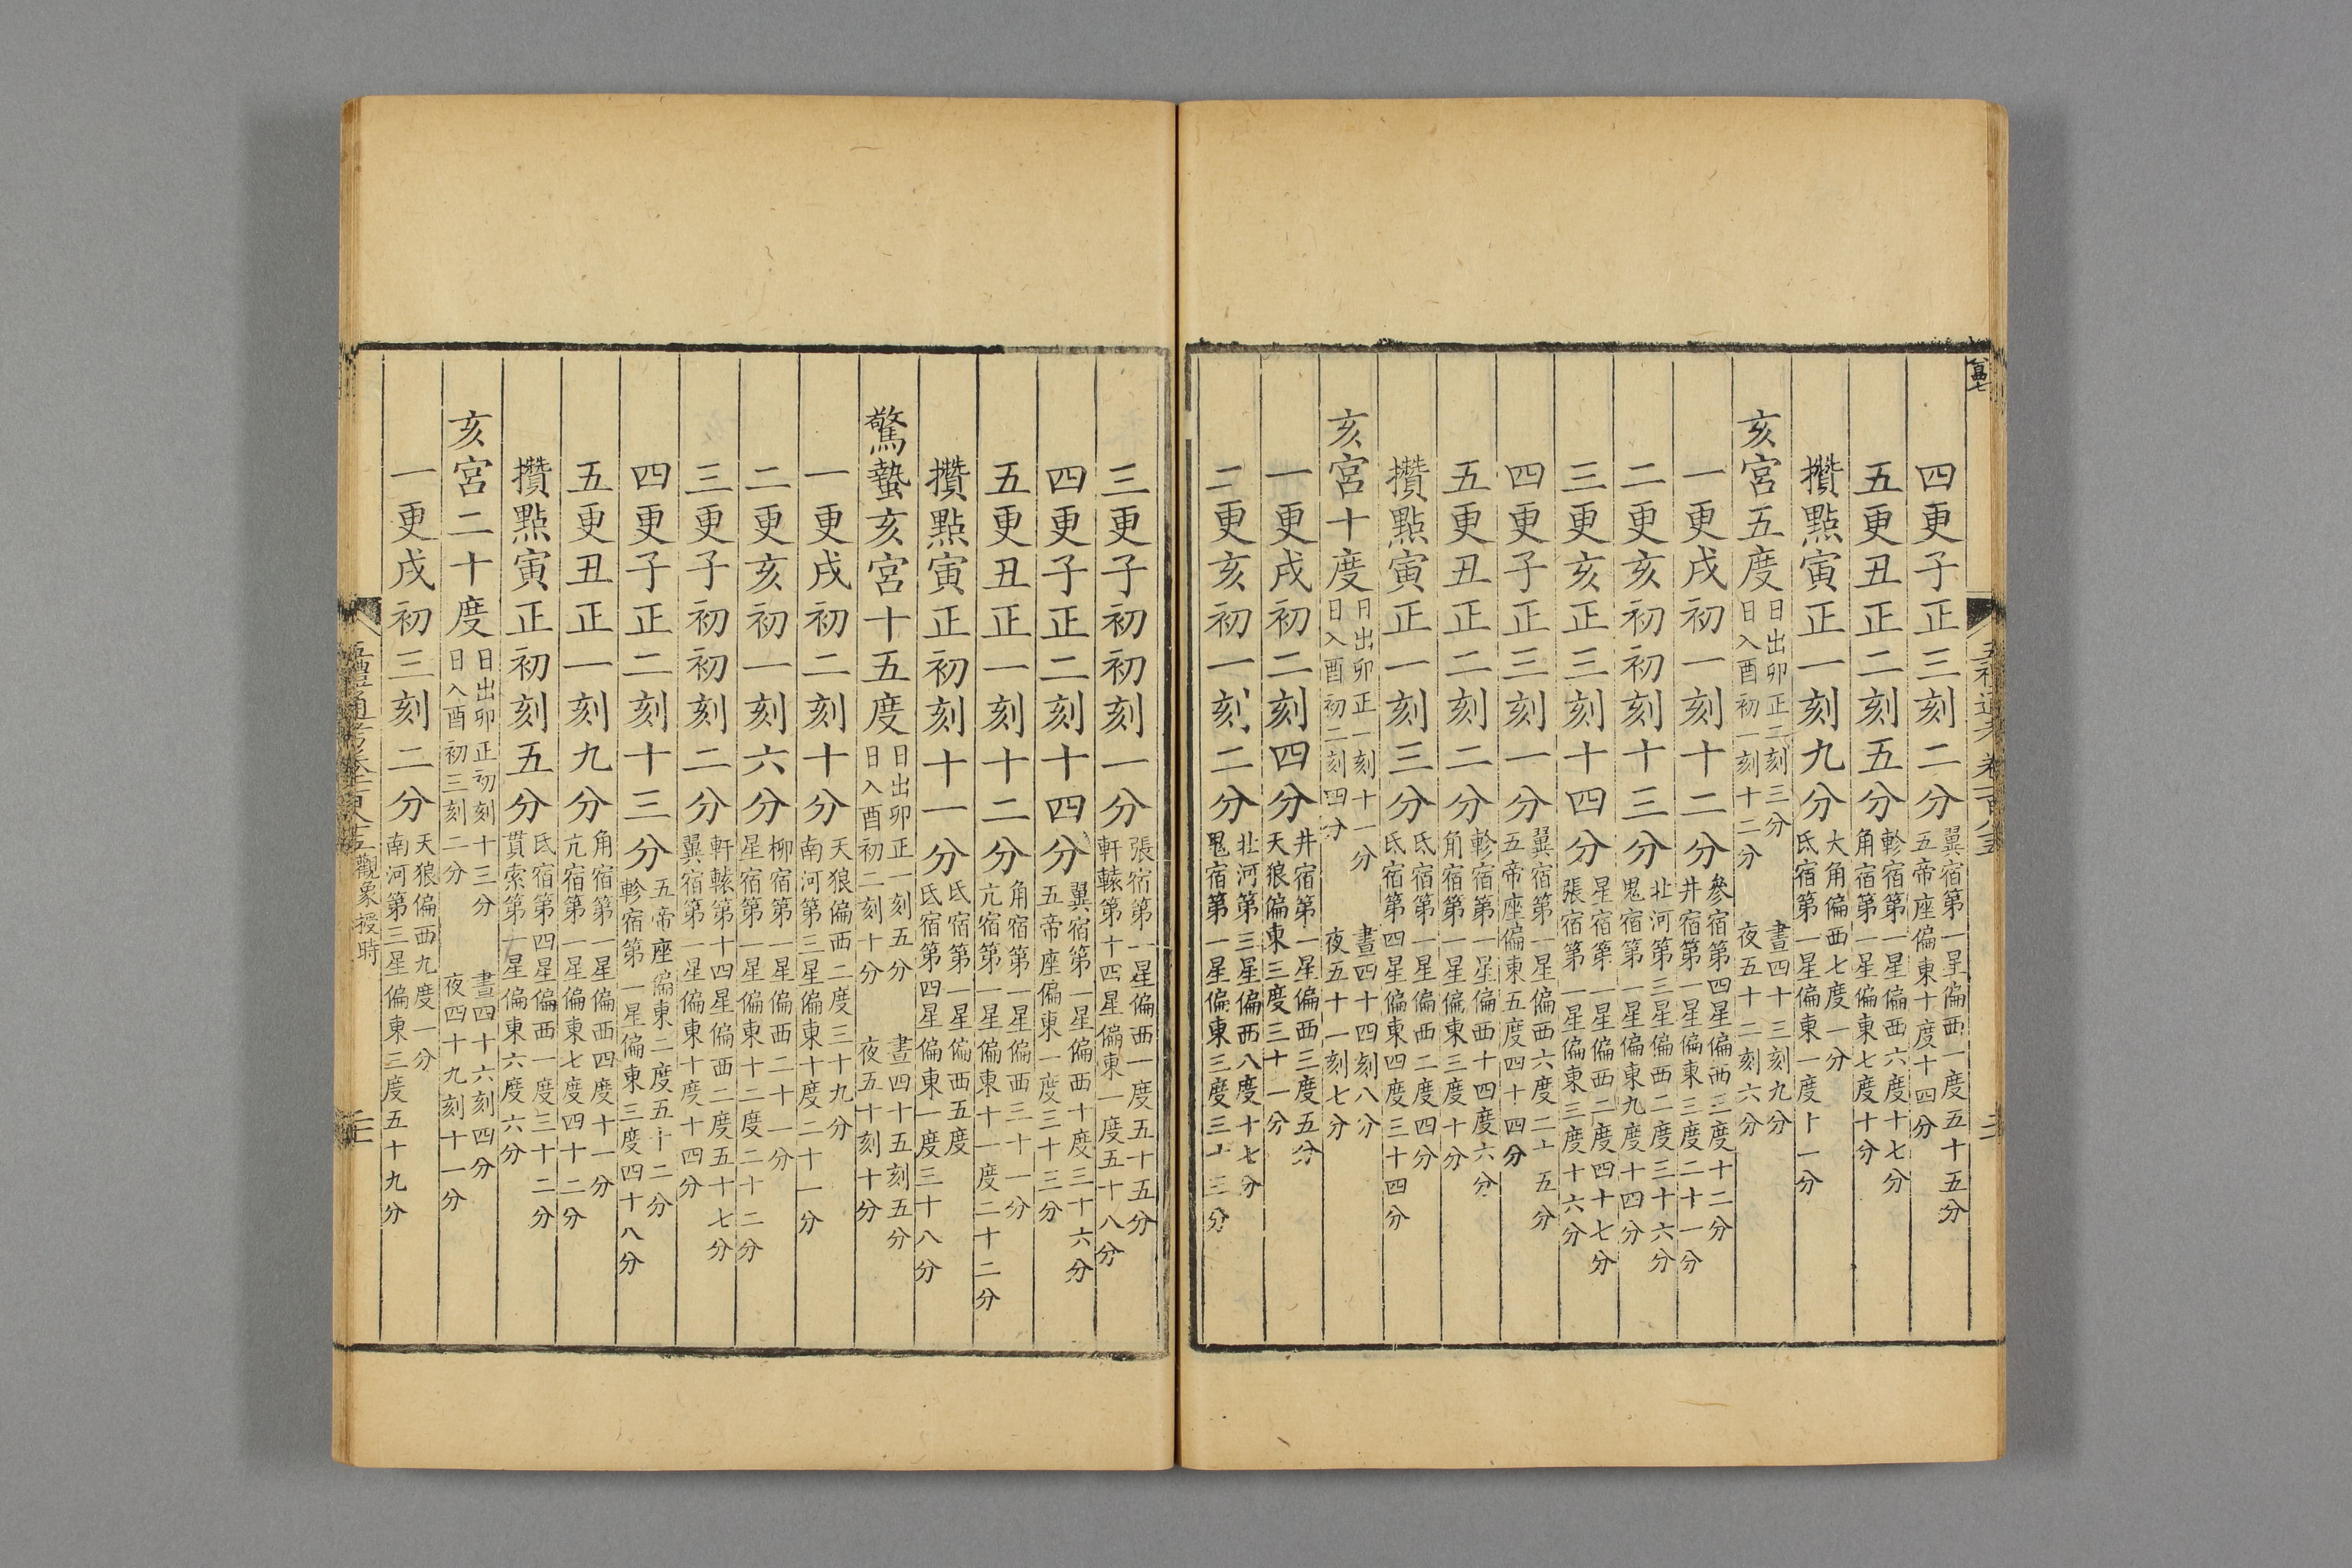 四更子正三刻二分翼宿第一星偏西一度五十五分
五帝座偏東十度十四分
五更丑正二刻五分軫宿第一星偏西六度十七分
角宿第一星偏東七度十分
攢點寅正一刻九分大角偏西七度一分
氐宿第一星偏東一度十一分
亥宮五度日出卯正二刻三分 晝四十三刻九分
日入酉初一刻十二分 夜五十二刻六分
一更戌初一刻十二分參宿第四星偏西三度十二分
井宿第一星偏東三度二十一分
二更亥初初刻十三分北河第三星偏西二度三十六分
鬼宿第一星偏東九度十四分
三更亥正三刻十四分星宿第一星偏西二度四十七分
張宿第一星偏東三度十六分
四更子正三刻一分翼宿第一星偏西六度二十五分
五帝座偏東五度四十四分
五更丑正二刻二分軫宿第一星偏西十四度六分
角宿第一星偏東三度十分
攢點寅正一刻三分氐宿第一星偏西二度四分
氐宿第四星偏東四度三十四分
亥宮十度日出卯正一刻十一分 晝四十四刻八分
日入酉初二刻四分 夜五十一刻七分
一更戌初二刻四分井宿第一星偏西三度五分
天狼偏東三度三十一分
二更亥初一刻二分北河第三星偏西八度十七分
鬼宿第一星偏東三度三十三分
三更子初初刻一分張宿第一星偏西一度五十五分
軒轅第十四星偏東一度五十八分
四更子正二刻十四分翼宿第一星偏西十度三十六分
五帝座偏東一度三十三分
五更丑正一刻十二分角宿第一星偏西三十一分
亢宿第一星偏東十一度二十二分
攢點寅正初刻十一分氐宿第一星偏西五度
氐宿第四星偏東一度三十八分
驚蟄亥宮十五度日出卯正一刻五分 晝四十五刻五分
日入酉初二刻十分 夜五十刻十分
一更戌初二刻十分天狼偏西二度三十九分
南河第三星偏東十度二十一分
二更亥初一刻六分柳宿第一星偏西二十一分
星宿第一星偏東十二度二十二分
三更子初初刻二分軒轅第十四星偏西二度五十七分
翼宿第一星偏東十度十四分
四更子正二刻十三分五帝座偏東二度五十二分
軫宿第一星偏東三度四十八分
五更丑正一刻九分角宿第一星偏西四度十一分
亢宿第一星偏東七度四十二分
攢點寅正初刻五分氐宿第四星偏西一度三十二分
貫索第一星偏東六度六分
亥宮二十度日出卯正初刻十三分 晝四十六刻四分
日入酉初三刻二分 夜四十九刻十一分
一更戌初三刻二分天狼偏西九度一分
南河第三星偏東三度五十九分
觀象授時